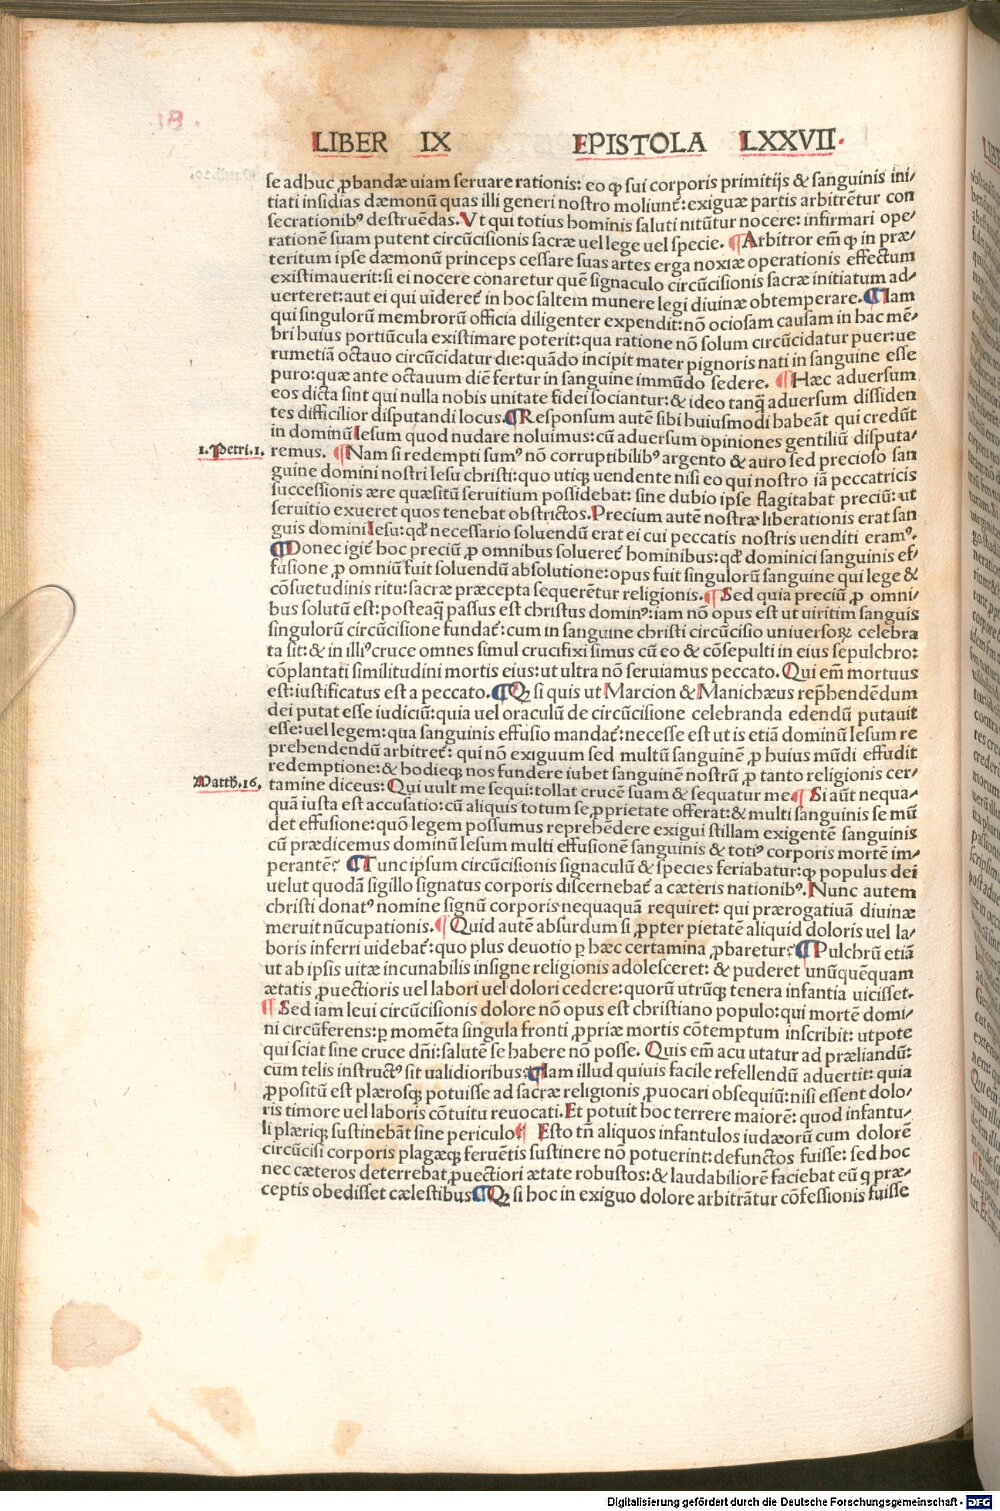 LIBER IX EPISTOLA LXXVII.
se adhuc ꝓbandæ uiam seruare rationis: eo ꝙ sui corporis primitijs & sanguinis ini⸗
tiati insidias dæmonū quas illi generi nostro moliunt̄: exiguæ partis arbitrētur con
secrationibꝰ destruēdas. Vt qui totius hominis saluti nitūtur nocere: infirmari ope⸗
rationē suam putent circūcisionis sacræ uel lege uel specie. ¶Arbitror em̄ ꝙ in præ⸗
teritum ipse dæmonū princeps cessare suas artes erga noxiæ operationis effectum
existimauerit: si ei nocere conaretur quē signaculo circūcisionis sacræ initiatum ad⸗
uerteret: aut ei qui uideret̄ in hoc saltem munere legi diuinæ obtemperare. ¶Iam
qui singulorū membrorū officia diligenter expendit: nō ociosam causam in hac mē⸗
bri huius portiūcula existimare poterit: qua ratione nō solum circūcidatur puer: ue
rumetiā octauo circūcidatur die: quādo incipit mater pignoris nati in sanguine esse
puro: quæ ante octauum diē fertur in sanguine immūdo sedere. ¶Hæc aduersum
eos dicta sint qui nulla nobis unitate fidei sociantur: & ideo tanꝗ aduersum dissiden
tes difficilior disputandi locus. ¶Responsum autē sibi huiusmodi habeāt qui credūt
in dominū Iesum quod nudare noluimus: cū aduersum opiniones gentiliū disputa⸗
1. Petri. 1. remus. ¶Nam si redempti sumꝰ nō corruptibilibꝰ argento & auro sed precioso san
guine domini nostri Iesu christi: quo utiqꝫ uendente nisi eo qui nostro iā peccatricis
successionis ære quæsitū seruitium possidebat: sine dubio ipse flagitabat preciū: ut
seruitio exueret quos tenebat obstrictos. Precium autē nostræ liberationis erat san
guis domini Iesu: qd' necessario soluendū erat ei cui peccatis nostris uenditi eramꝰ.
¶Donec igit̄ hoc preciū ꝓ omnibus solueret̄ hominibus: qd' dominici sanguinis ef⸗
fusione ꝓ omniū fuit soluendū absolutione: opus fuit singulorū sanguine qui lege &
cōsuetudinis ritu: sacræ præcepta sequerētur religionis. ¶Sed quia preciū ꝓ omni⸗
bus solutū est: posteaꝗ passus est christus dominꝰ: iam nō opus est ut uiritim sanguis
singulorū circūcisione fundat̄: cum in sanguine christi circūcisio uniuersoꝝ celebra
ta sit: & in illiꝰ cruce omnes simul crucifixi simus cū eo & cōsepulti in eius sepulchro:
cōplantati similitudini mortis eius: ut ultra nō seruiamus peccato. Qui em̄ mortuus
est: iustificatus est a peccato. ¶Qꝫ si quis ut Marcion & Manichæus rep̄hendēdum
dei putat esse iudiciū: quia uel oraculū de circūcisione celebranda edendū putauit
esse: uel legem: qua sanguinis effusio mandat̄: necesse est ut is etiā dominū Iesum re
prehendendū arbitret̄: qui nō exiguum sed multū sanguinē ꝓ huius mūdi effudit
redemptione: & hodieqꝫ nos fundere iubet sanguinē nostrū ꝓ tanto religionis cer⸗
Matth. 16. tamine diceus: Qui uult me sequi: tollat crucē suam & sequatur me ¶Si aūt nequa⸗
quā iusta est accusatio: cū aliquis totum se ꝓprietate offerat: & multi sanguinis se mū
det effusione: quō legem possumus reprehēdere exigui stillam exigentē sanguinis
cū prædicemus dominū Iesum multi effusionē sanguinis & totiꝰ corporis mortē im⸗
perantē? ¶Tunc ipsum circūcisionis signaculū & species feriabatur: ꝙ populus dei
uelut quodā sigillo signatus corporis discernebat̄ a cæteris nationibꝰ. Nunc autem
christi donatꝰ nomine signū corporis nequaquā requiret: qui prærogatiuā diuinæ
meruit nūcupationis. ¶Quid autē absurdum si ꝓpter pietatē aliquid doloris uel la⸗
boris inferri uidebat̄: quo plus deuotio ꝑ hæc certamina ꝓbaretur? ¶Pulchrū etiā
ut ab ipsis uitæ incunabilis insigne religionis adolesceret: & puderet unūquēquam
ætatis ꝓuectioris uel labori uel dolori cedere: quorū utrūqꝫ tenera infantia uicisset.
¶Sed iam leui circūcisionis dolore nō opus est christiano populo: qui mortē domi⸗
ni circūferens: ꝑ momēta singula fronti ꝓpriæ mortis cōtemptum inscribit: utpote
qui sciat sine cruce dn̄i: salutē se habere nō posse. Quis em̄ acu utatur ad præliandū:
cum telis instructꝰ sit ualidioribus: ¶Iam illud quiuis facile refellendū aduertit: quia
ꝓpositū est plærosqꝫ potuisse ad sacræ religionis ꝓuocari obsequiū: nisi essent dolo⸗
ris timore uel laboris cōtuitu reuocati. Et potuit hoc terrere maiorē: quod infantu⸗
li plæriqꝫ sustinebāt sine periculo ¶Esto tn̄ aliquos infantulos iudæorū cum dolorē
circūcisi corporis plagæqꝫ feruētis sustinere nō potuerint: defunctos fuisse: sed hoc
nec cæteros deterrebat ꝓuectiori ætate robustos: & laudabiliorē faciebat eū ꝗ præ⸗
ceptis obedisset cælestibus ¶Qꝫ si hoc in exiguo dolore arbitrātur cōfessionis fuisse
Digitalisierung gefördert durch die Deutsche Forschungsgemeinschaft - DFG